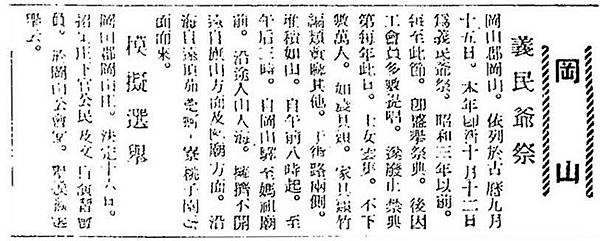 岡山
義民爺祭
岡山郡岡山。依列於古曆九月
十五日。本年即新十月十二日
為義民爺祭。昭和三年以前。
每至此節。即盛舉祭典。後因
工會員多數提唱。遂廢止祭典
第每年此日。士女雲集。不下
數萬人。如 具類。家具類竹
細類 其他。于街路兩側。
堆積如山。自午前八時起。至
午后三時。自岡山驛至媽祖廟
前。沿途人山人海。擁擠不開
遠自旗山方面及 廟方面。沿
海自 頂茄萣 寮桃子園方
面而來。
模擬選舉
岡山郡岡山庄。決定十六日。
招 庄下官公民及
員。於岡山公會堂。 模擬選
舉云。